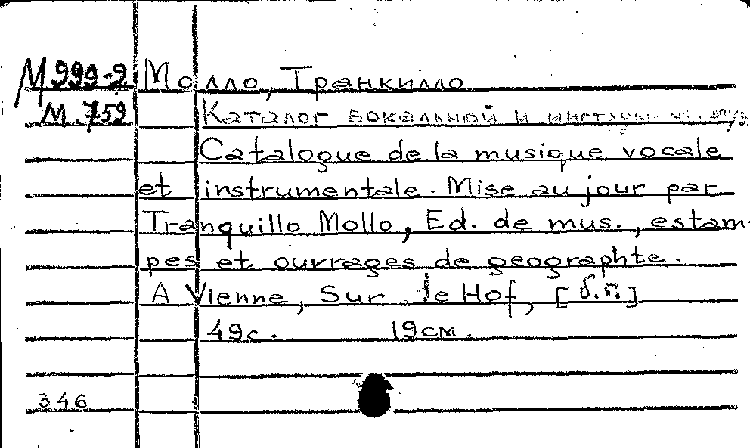 М 999-2 Молло, Транкилло
М. 759 Каталог вокальной и
Catalogue de la musique vocale
et instrumentale. Mise au jour par
Tranquillo Mollo, Ed. de mus., estam-
pes et ouvrages de geographte.
A Vienne, Sur le Hof, [б.г.]
49с. 19см.
346